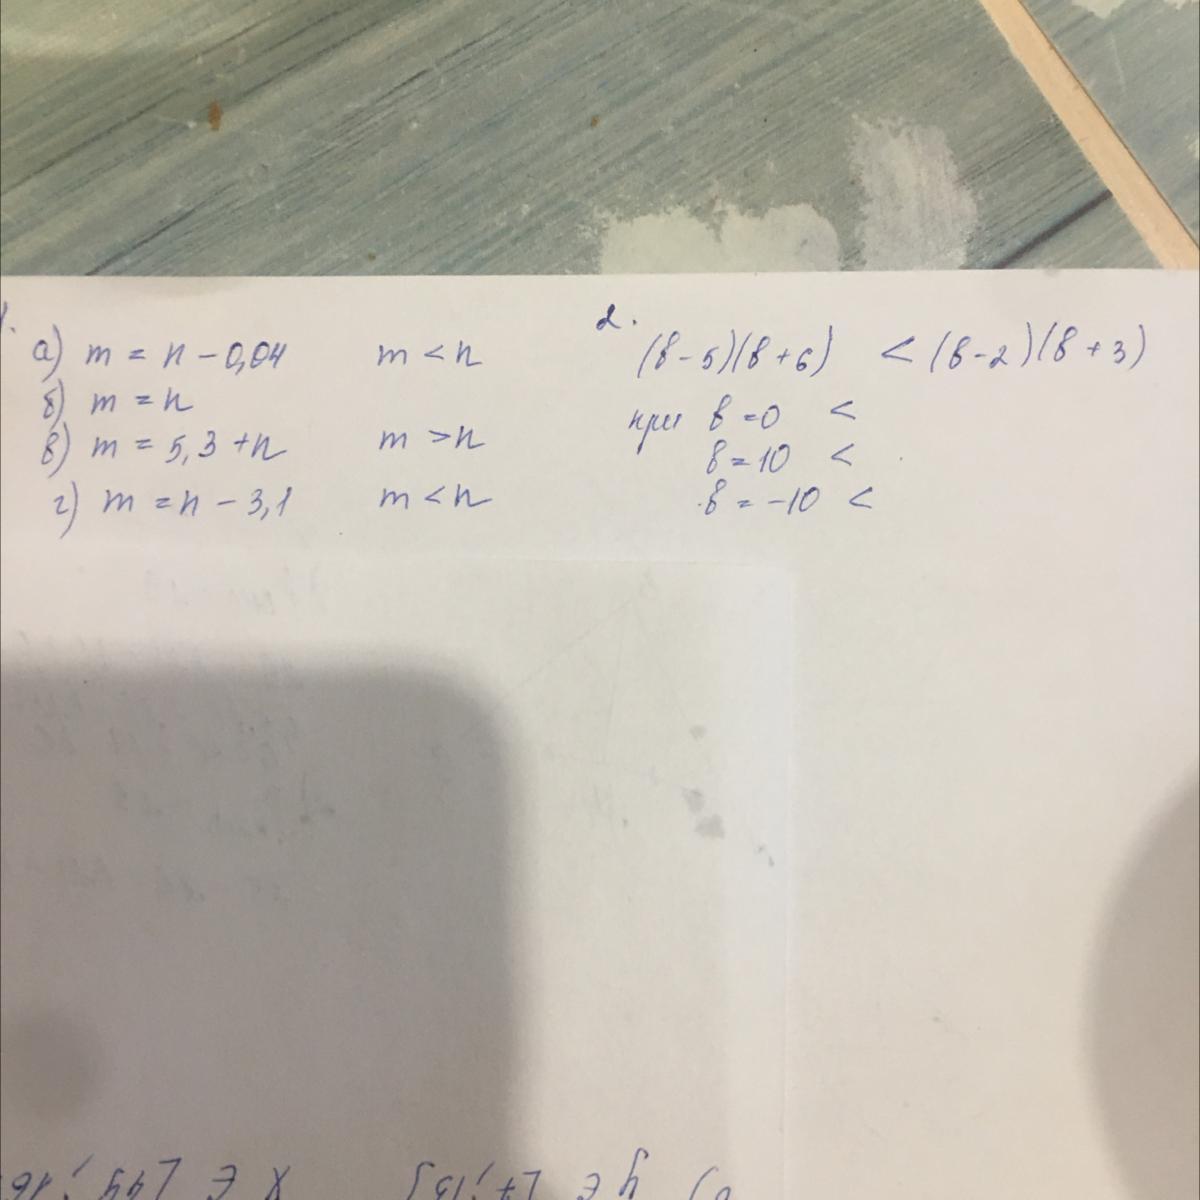 1.
а) m = n - 0,04    m < n
б) m = n
в) m = 5,3 + n    m > n
г) m = n - 3,1    m < n
2.
(в - 5)(в + 6) < (в - 2)(в + 3)
при в = 0 <
в = 10 <
в = -10 <